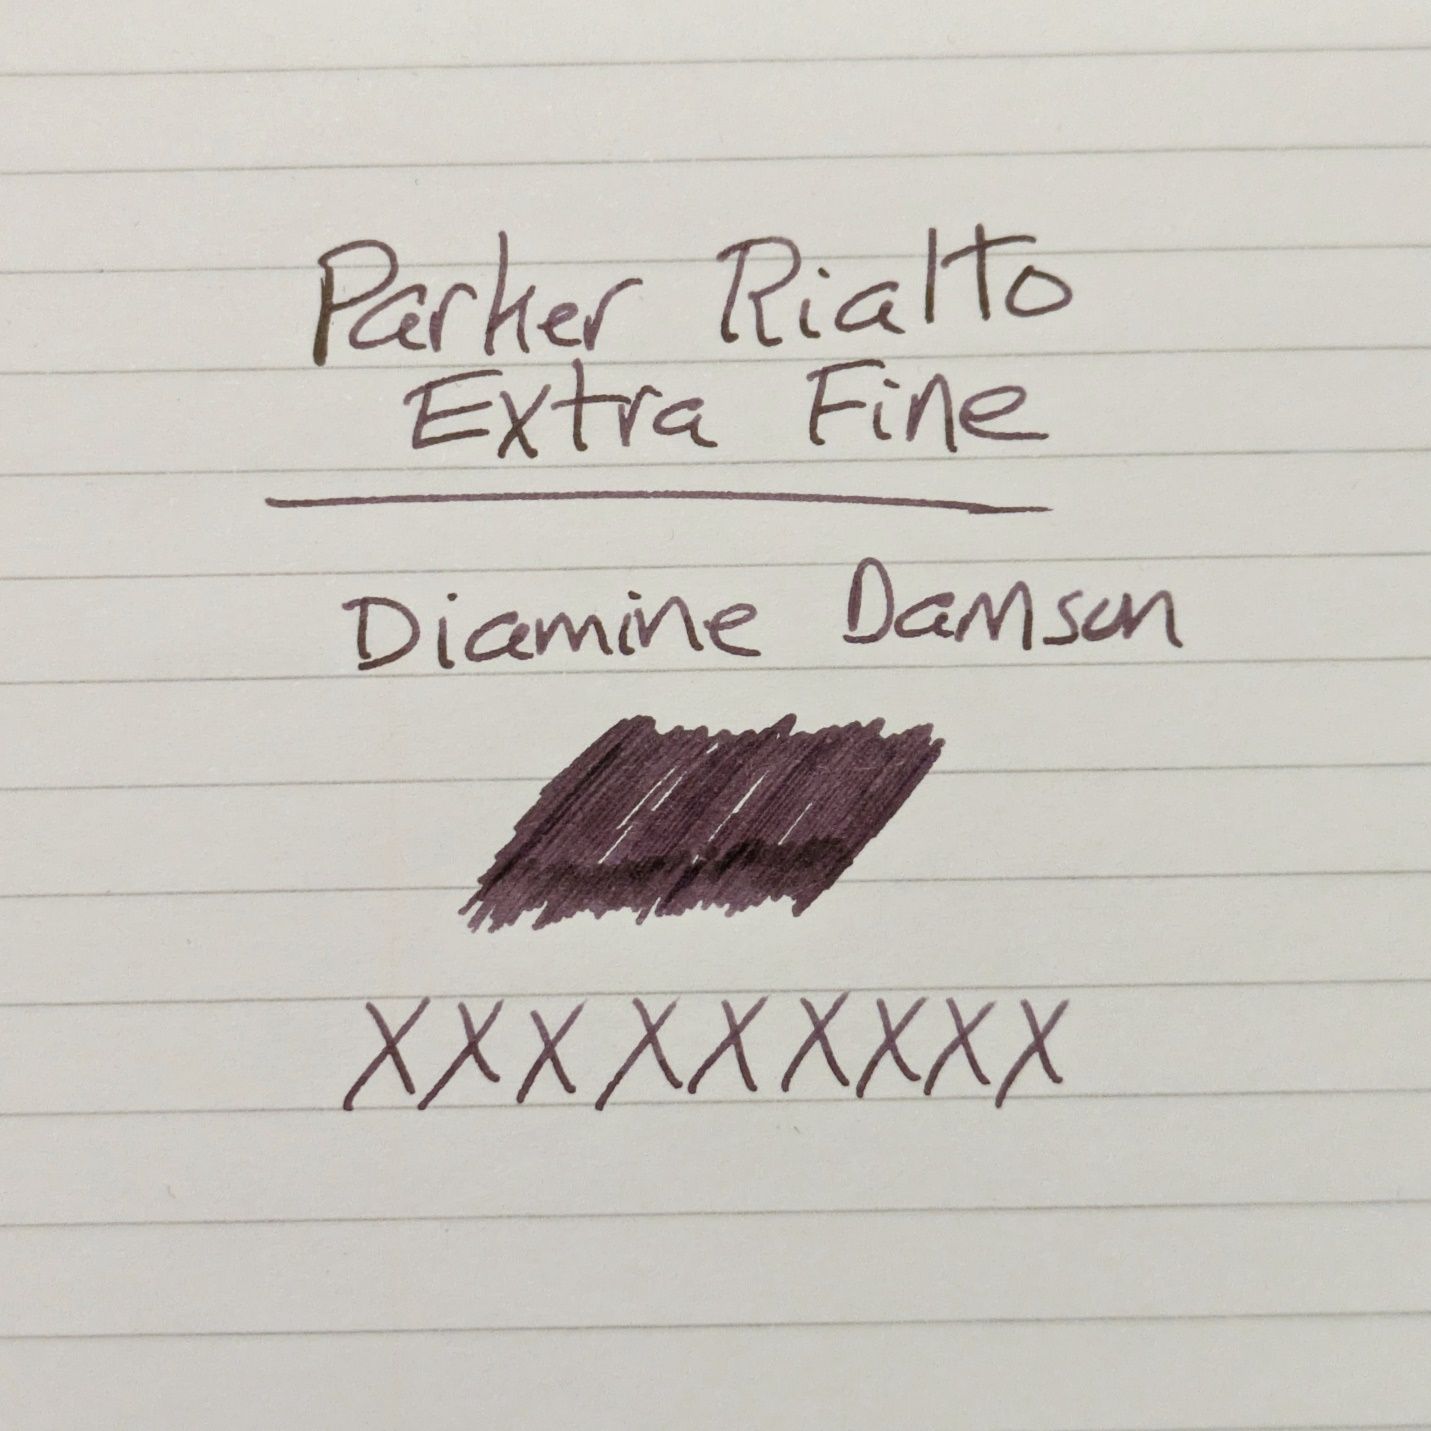 Parker Rialto
Extra Fine
Diamine Damson
XXXXXXXXX